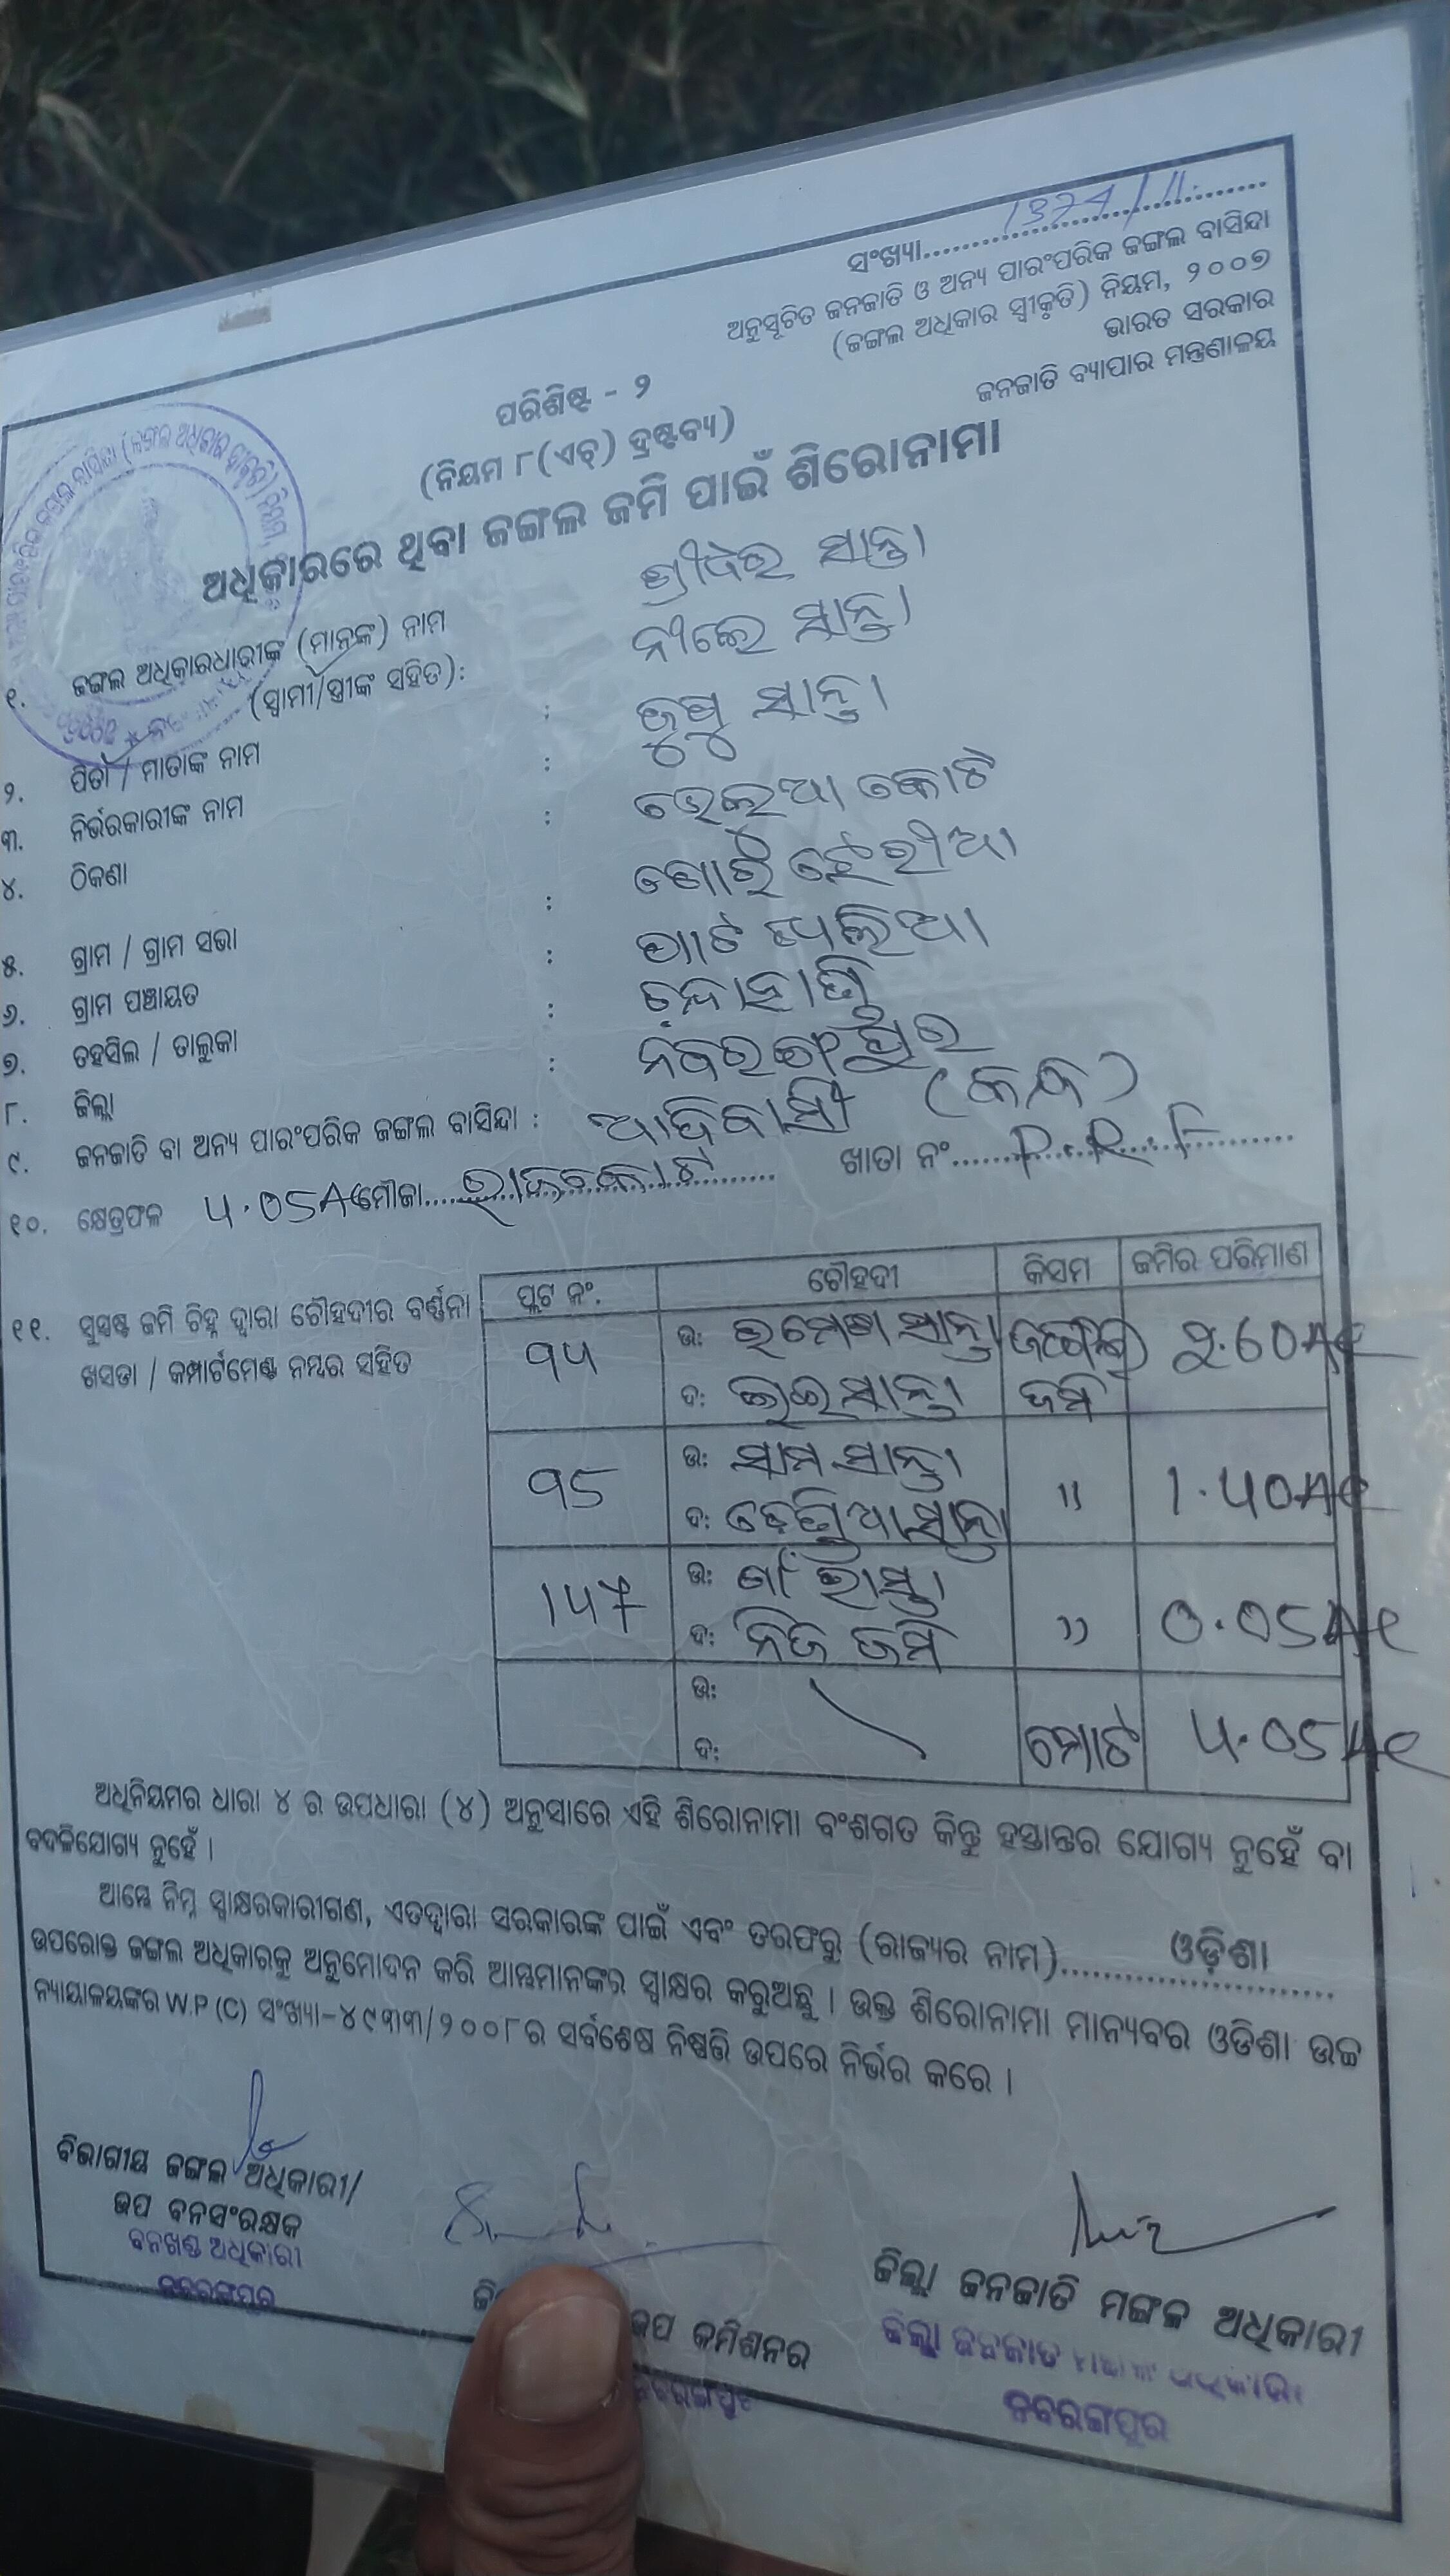 ସଂଖ୍ୟା.......1374/11.......
ଅନୁସୂଚିତ ଜନଜାତି ଓ ଅନ୍ୟ ପାରଂପରିକ ଜଙ୍ଗଲ ବାସିନ୍ଦା
(ଜଙ୍ଗଲ ଅଧିକାର ସ୍ୱୀକୃତି) ନିୟମ, ୨୦୦୭
ଭାରତ ସରକାର
ଜନଜାତି ବ୍ୟାପାର ମନ୍ତ୍ରଣାଳୟ
ପରିଶିଷ୍ଟ - ୨
(ନିୟମ ୮(ଏଚ୍) ଦ୍ରଷ୍ଟବ୍ୟ)
ଅଧିକାରରେ ଥିବା ଜଙ୍ଗଲ ଜମି ପାଇଁ ଶିରୋନାମା
୧. ଜଙ୍ଗଲ ଅଧିକାରଧାରୀଙ୍କ (ମାନଙ୍କ) ନାମ ଶ୍ରୀଧର ସାନ୍ତା
(ସ୍ୱାମୀ/ସ୍ତ୍ରୀଙ୍କ ସହିତ): ସାନ୍ତା
୨. ପିତା / ମାତାଙ୍କ ନାମ : ସାନ୍ତା
୩. ନିର୍ଭରକାରୀଙ୍କ ନାମ :
୪. ଠିକଣା : ଭେଲୁଆ କୋଟ
୫. ଗ୍ରାମ / ଗ୍ରାମ ସଭା :
୬. ଗ୍ରାମ ପଞ୍ଚାୟତ :
୭. ତହସିଲ / ତାଲୁକା : ଚନ୍ଦାହାଣ୍ଡି
୮. ଜିଲ୍ଲା : ନବରଙ୍ଗପୁର
୯. ଜନଜାତି ବା ଅନ୍ୟ ପାରଂପରିକ ଜଙ୍ଗଲ ବାସିନ୍ଦା : ଆଦିବାସୀ (କନ୍ଧ)
୧୦. କ୍ଷେତ୍ରଫଳ 4.05Ac ମୌଜା....ରାଜକୋଟ.... ଖାତା ନଂ....P.R.F....
୧୧. ସୁସ୍ପଷ୍ଟ ଜମି ଚିହ୍ନ ଦ୍ୱାରା ଚୌହଦୀର ବର୍ଣ୍ଣନା
ଖସଡା / କମ୍ପାର୍ଟମେଣ୍ଟ ନମ୍ବର ସହିତ
ପ୍ଲଟ ନଂ. ଚୌହଦୀ କିସମ ଜମିର ପରିମାଣ
94 ଉ: ରମେଶ ସାନ୍ତା ଜଙ୍ଗଲ 2.60Ac
ଦ: ସାନ୍ତା ଜମି
95 ଉ: ସାମ ସାନ୍ତା " 1.40Ac
ଦ: ସାନ୍ତା
147 ଉ: ଗାଁ ରାସ୍ତା " 0.05Ac
ଦ: ନିଜ ଜମି
ଉ:
ଦ: ମୋଟ 4.05Ac
ଅଧିନିୟମର ଧାରା ୪ ର ଉପଧାରା (୪) ଅନୁସାରେ ଏହି ଶିରୋନାମା ବଂଶଗତ କିନ୍ତୁ ହସ୍ତାନ୍ତର ଯୋଗ୍ୟ ନୁହେଁ ବା
ବଦଳିଯୋଗ୍ୟ ନୁହେଁ ।
ଆମ୍ଭେ ନିମ୍ନ ସ୍ୱାକ୍ଷରକାରୀଗଣ, ଏତଦ୍ୱାରା ସରକାରଙ୍କ ପାଇଁ ଏବଂ ତରଫରୁ (ରାଜ୍ୟର ନାମ)....ଓଡ଼ିଶା....
ଉପରୋକ୍ତ ଜଙ୍ଗଲ ଅଧିକାରକୁ ଅନୁମୋଦନ କରି ଆମ୍ଭମାନଙ୍କର ସ୍ୱାକ୍ଷର କରୁଅଛୁ । ଉକ୍ତ ଶିରୋନାମା ମାନ୍ୟବର ଓଡିଶା ଉଚ୍ଚ
ନ୍ୟାୟାଳୟଙ୍କର W.P (C) ସଂଖ୍ୟା-୪୯୩୩/୨୦୦୮ର ସର୍ବଶେଷ ନିଷ୍ପତ୍ତି ଉପରେ ନିର୍ଭର କରେ ।
ବିଭାଗୀୟ ଜଙ୍ଗଲ ଅଧିକାରୀ/
ଉପ ବନସଂରକ୍ଷକ
ବନଖଣ୍ଡ ଅଧିକାରୀ
ନବରଙ୍ଗପୁର
ଉପ କମିଶନର
ନବରଙ୍ଗପୁର
ଜିଲ୍ଲା ଜନଜାତି ମଙ୍ଗଳ ଅଧିକାରୀ
ଜିଲ୍ଲା ଜନଜାତି ମଙ୍ଗଳ ଅଧିକାରୀ
ନବରଙ୍ଗପୁର